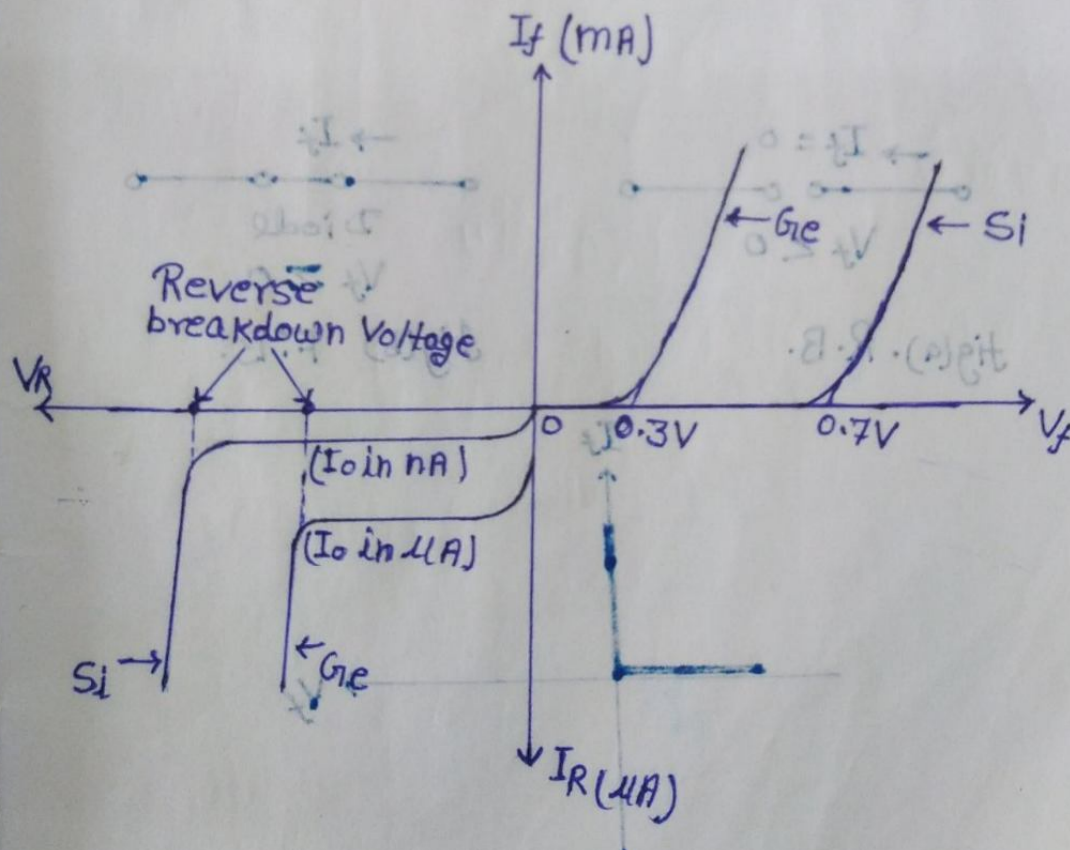 If (mA)
Ge
Si
Reverse
breakdown Voltage
VR
0
0.3V
0.7V
Vf
(Io in nA)
(Io in μA)
Si
Ge
IR (μA)